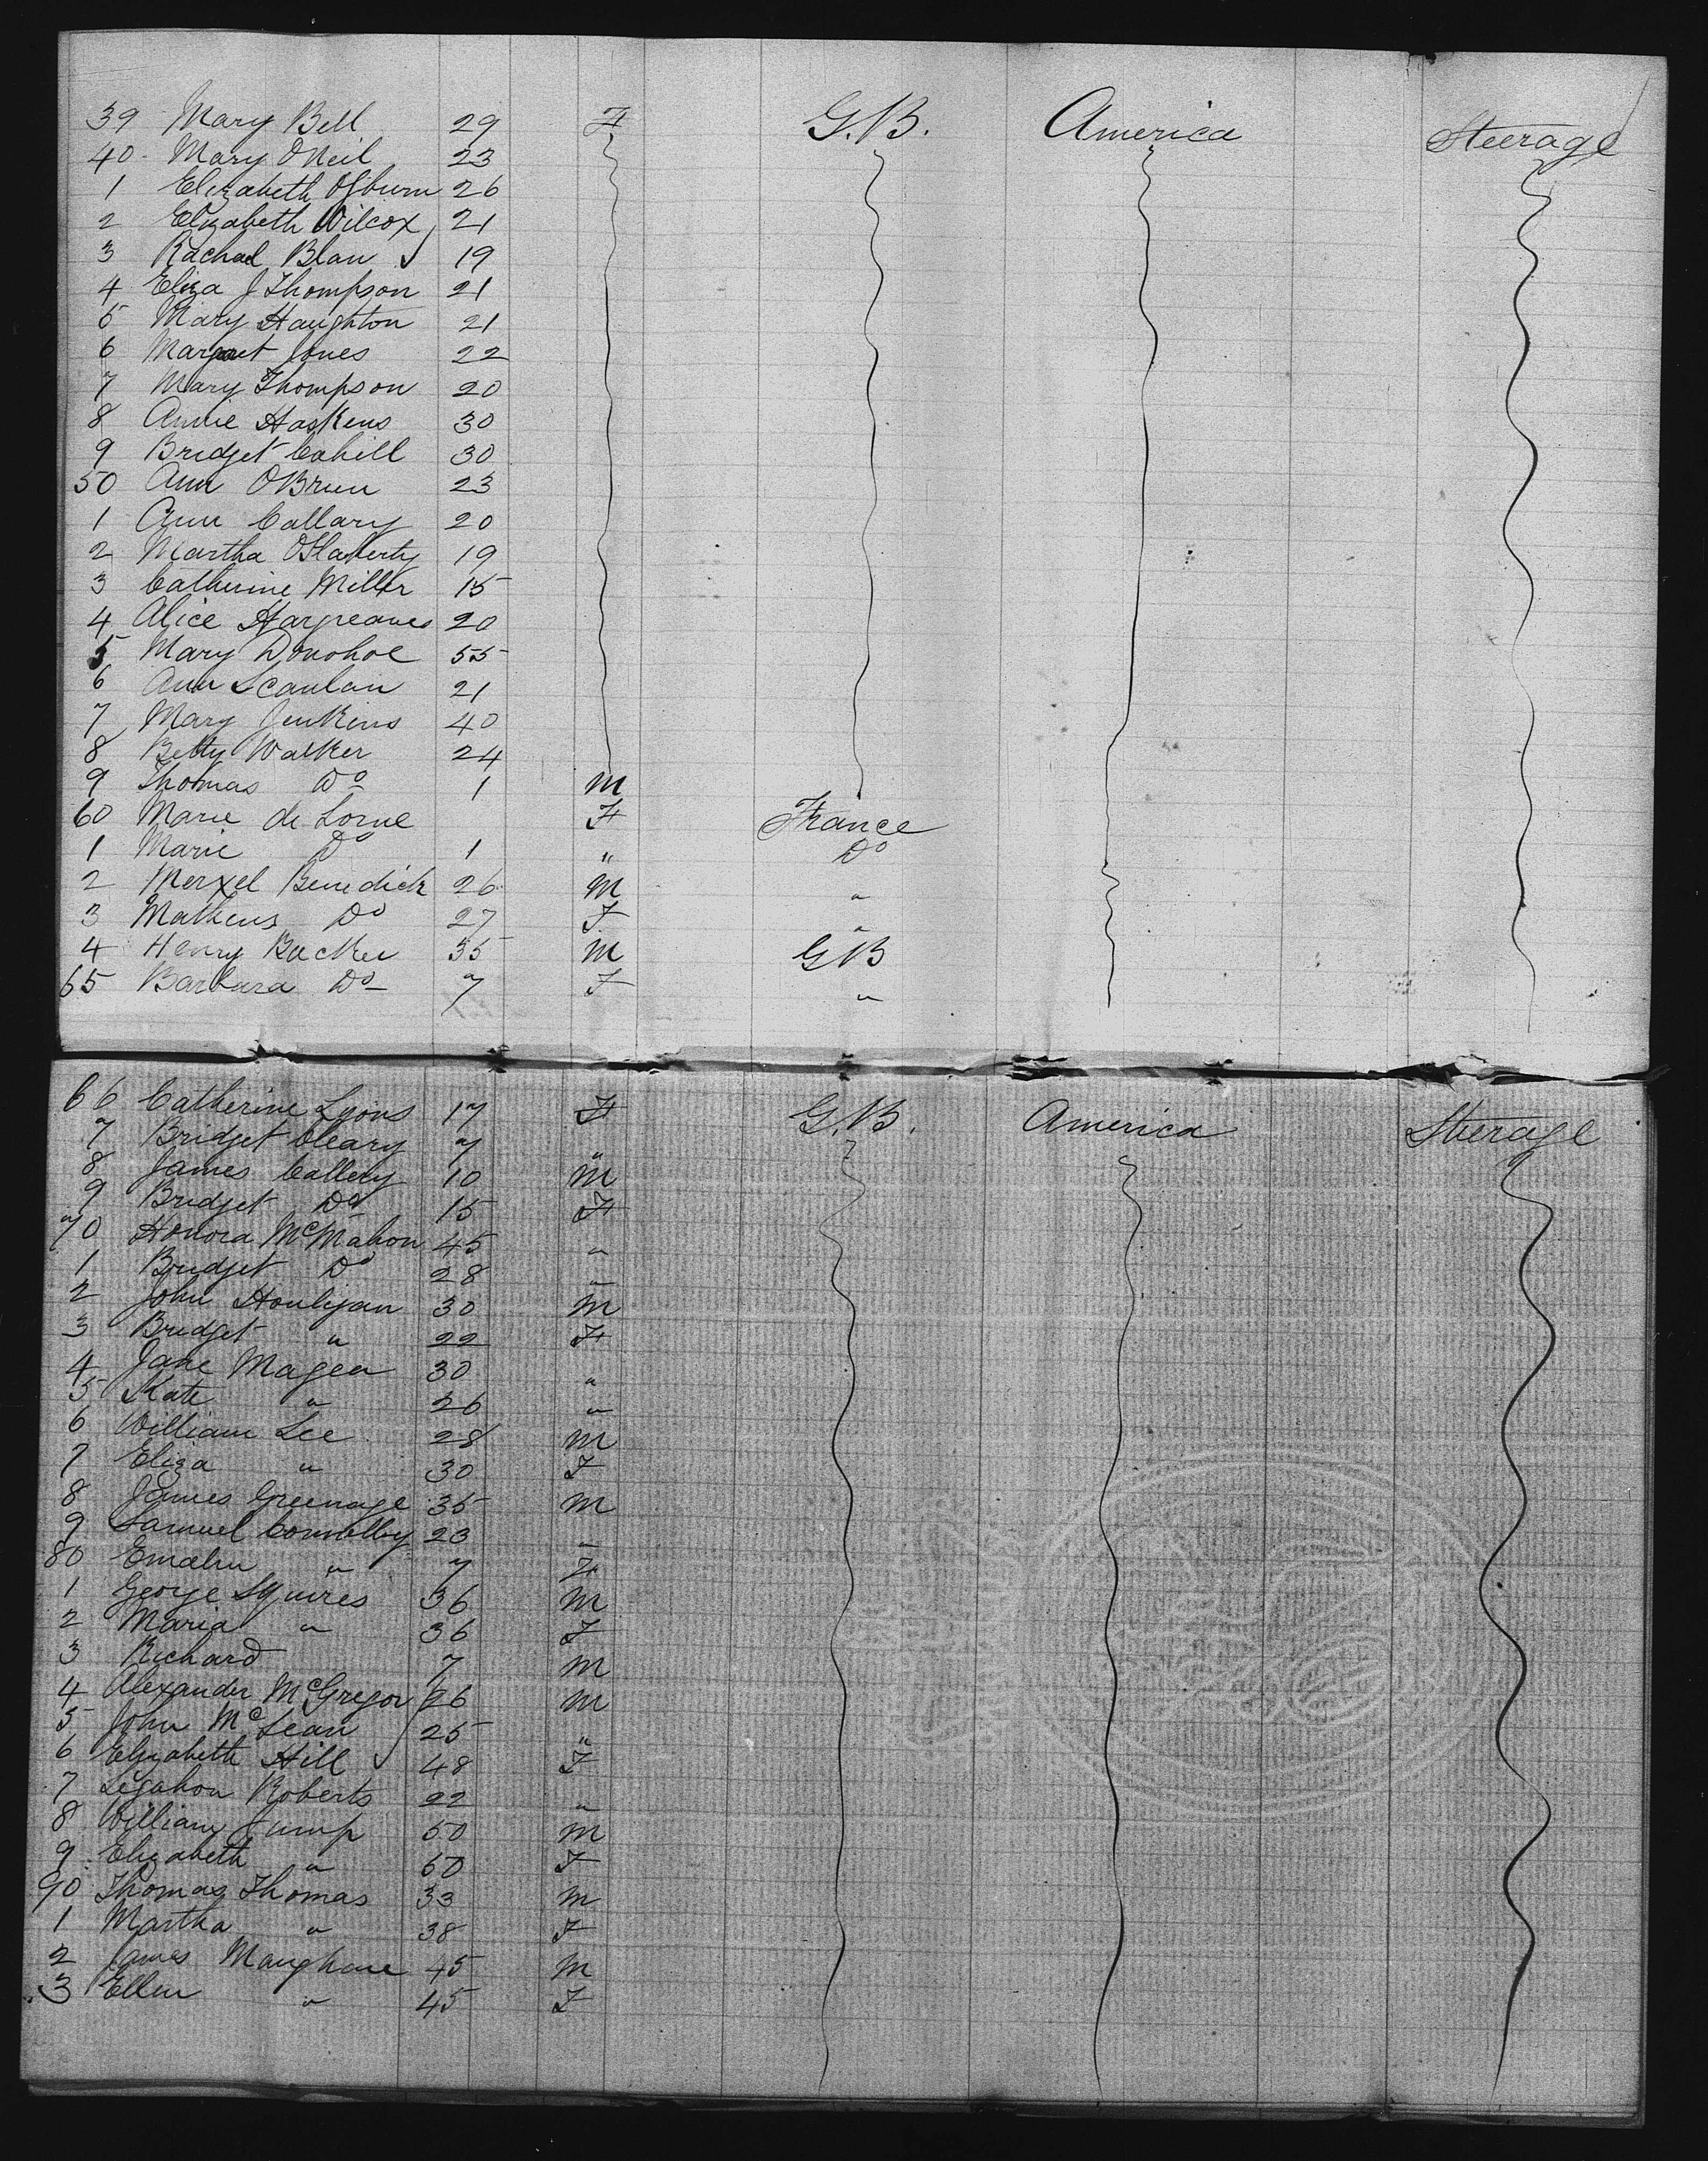 39 Mary Bell 29 F G.B. America Steerage
40 Mary ONeil 23
1 Elizabeth Osburn 26
2 Elizabeth Wilcox 21
3 Rachael Blan 19
4 Eliza J Thompson 21
5 Mary Haughton 21
6 Margaret Jones 22
7 Mary Thompson 20
8 Annie Haskens 30
9 Bridget Cahill 30
50 Ann OBrien 23
1 Ann Callary 20
2 Martha OFlaherty 19
3 Catherine Miller 15
4 Alice Hargreaves 20
5 Mary Donohoe 55
6 Ann Scanlan 21
7 Mary Jenkins 40
8 Betty Walker 24
9 Thomas Do 1 M
60 Marie de Lorne F France
1 Marie Do 1 " Do
2 Merxel Benedick 26 M "
3 Do 27 F "
4 Henry Backer 35 M GB
65 Barbara Do 7 F "
66 Catherine Lyons 17 F G.B. America Steerage
7 Bridget Cleary 7 "
8 James Callery 10 M
9 Bridget Do 15 F
70 Honora McMahon 45 "
1 Bridget Do 28 "
2 John Houligan 30 M
3 Bridget " 22 F
4 Jane Magea 30 "
5 Kate " 26 "
6 William Lee 28 M
7 Eliza " 30 F
8 James Greenage 35 M
9 Samuel Connelly 23 "
80 " 7 F
1 George Squires 36 M
2 Maria " 36 F
3 Richard 7 M
4 Alexander McGregor 26 M
5 John McLean 25 "
6 Elizabeth Hill 48 F
7 Roberts 22 "
8 William Jump 50 M
9 Elizabeth " 50 F
90 Thomas Thomas 33 M
1 Martha " 38 F
2 James Maughan 45 M
3 Ellen " 45 F